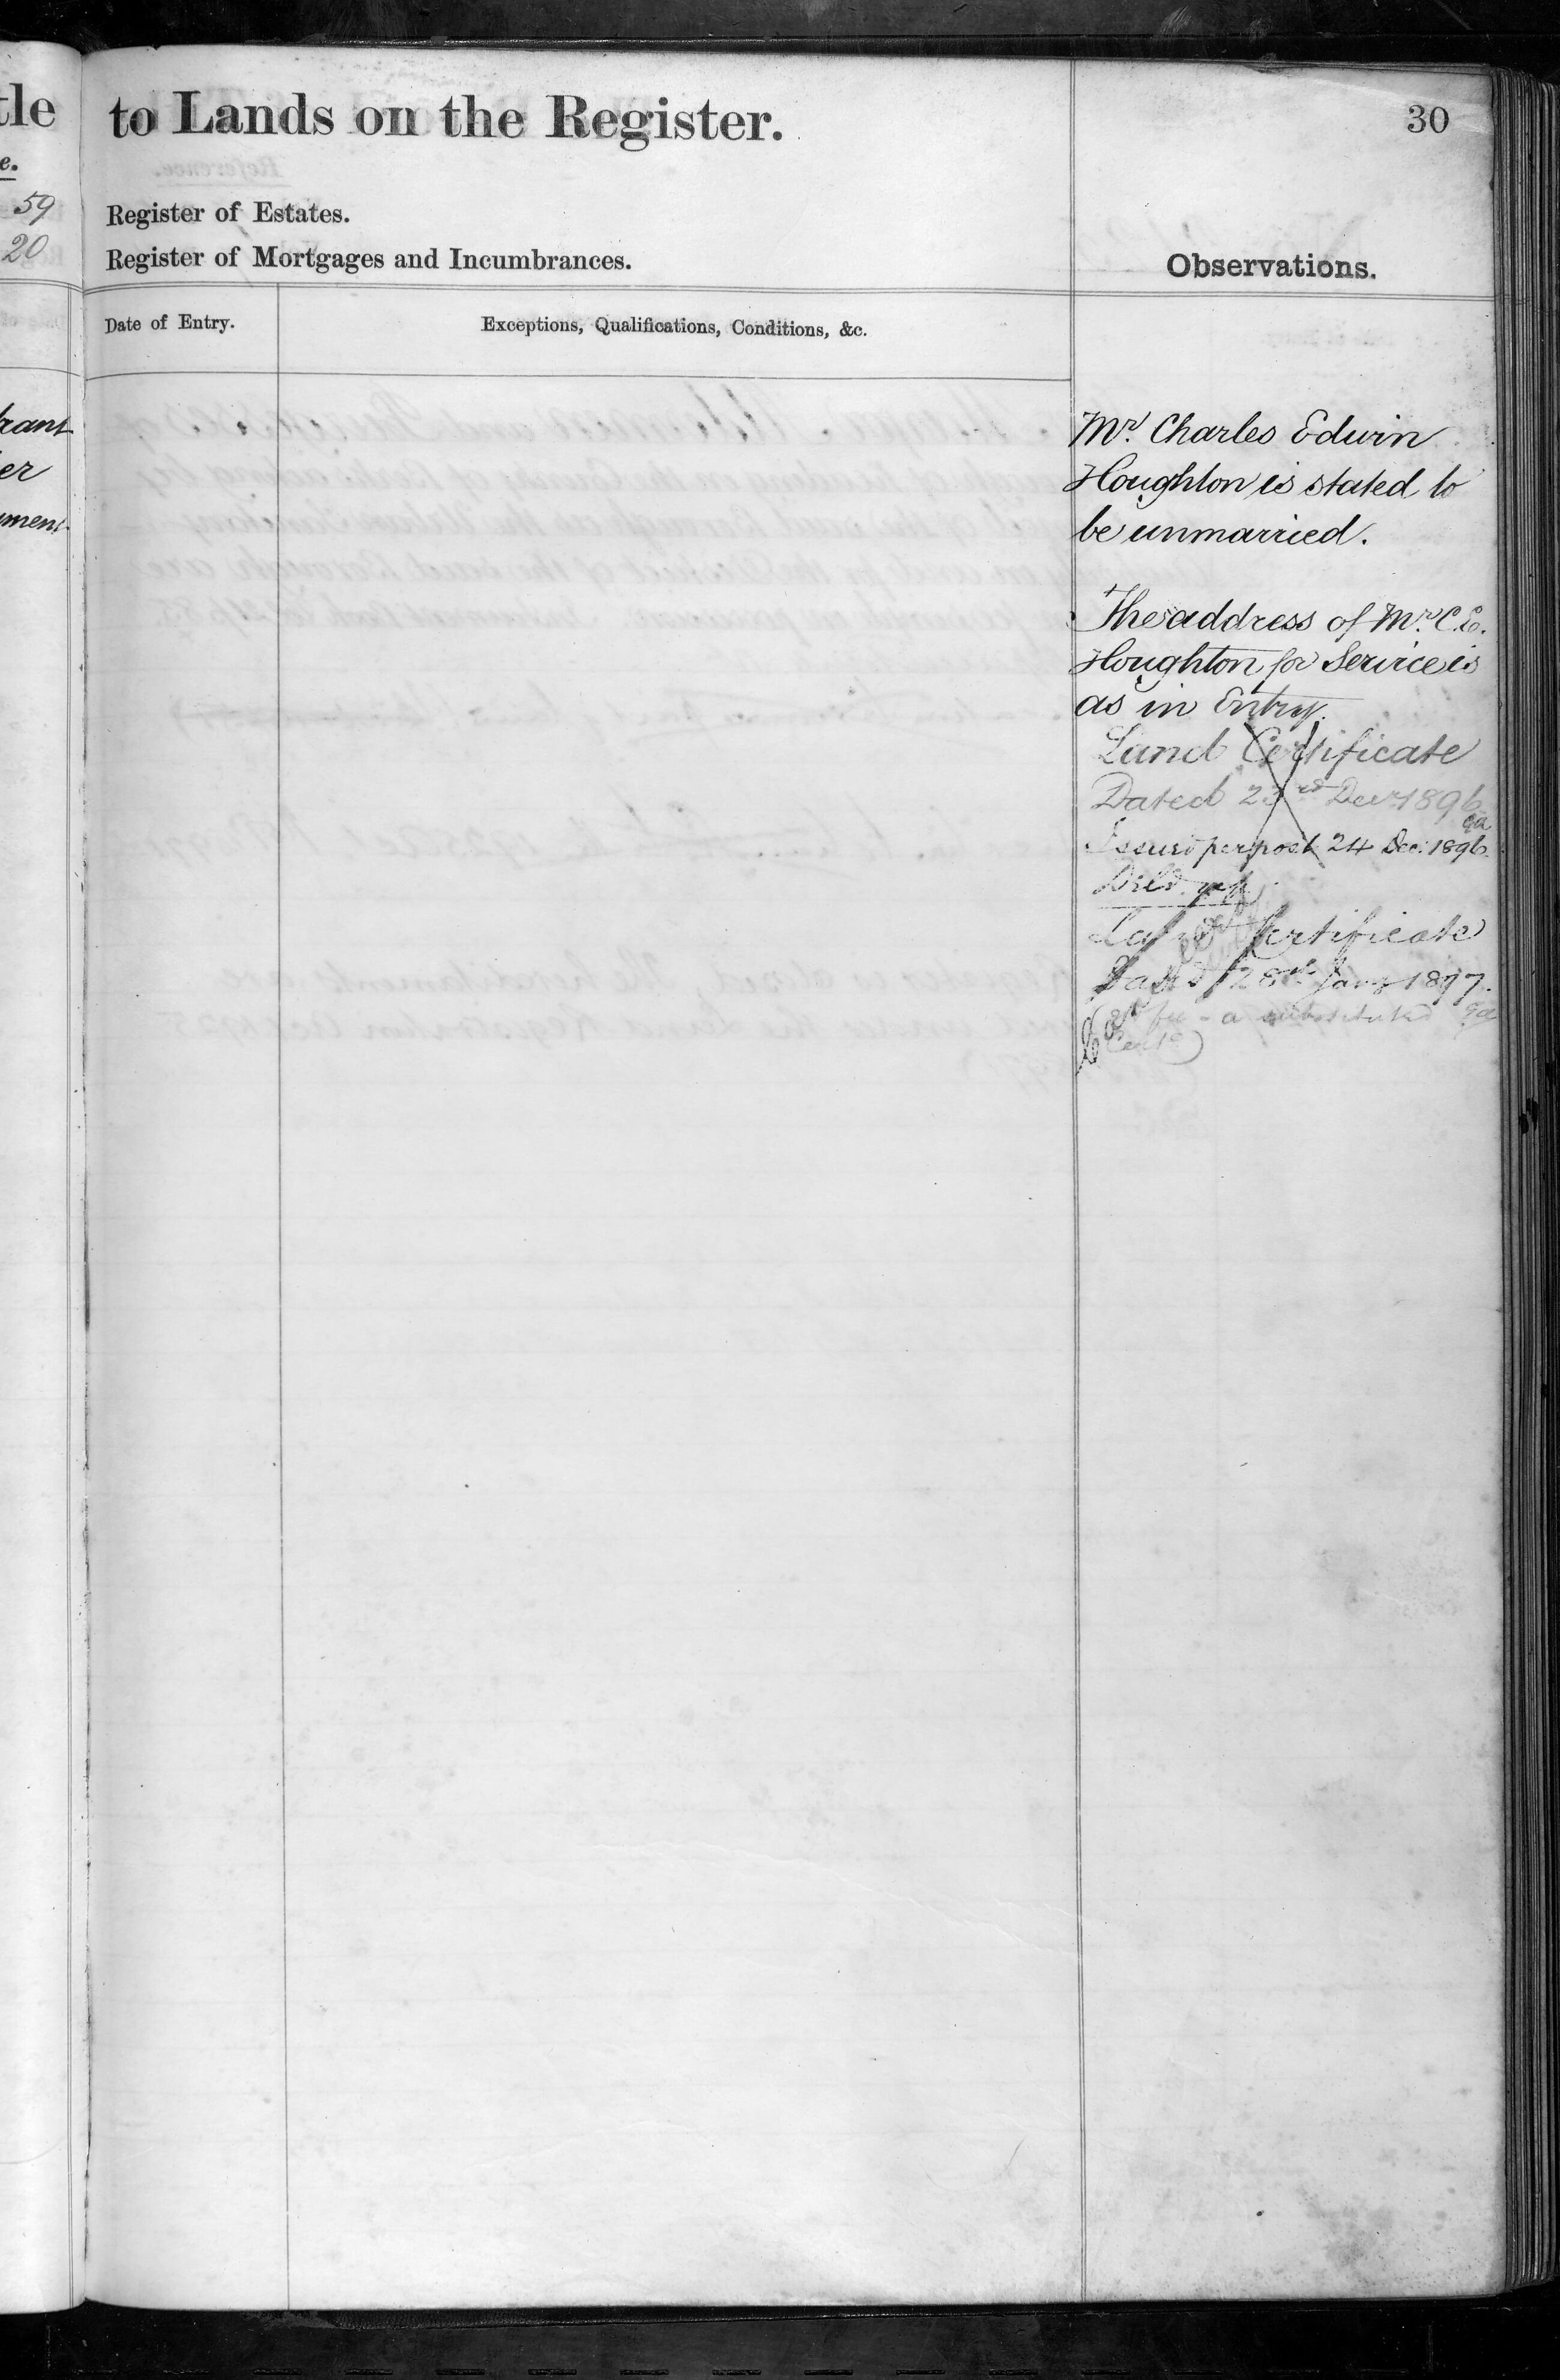 tle
e.
59
20
rant
er
ment
to Lands on the Register.
30
Register of Estates.
Register of Mortgages and Incumbrances.
Observations.
Date of Entry.
Exceptions, Qualifications, Conditions, &c.
Mr. Charles Edwin
Houghton is stated to
be unmarried.
The address of Mr. C. E.
Houghton for Service is
as in Entry.
Land Certificate
Dated 23rd Decr 1896
Issued per post 24 Dec. 1896.
Land Certificate
Dated 28th Jany 1897.
a substituted